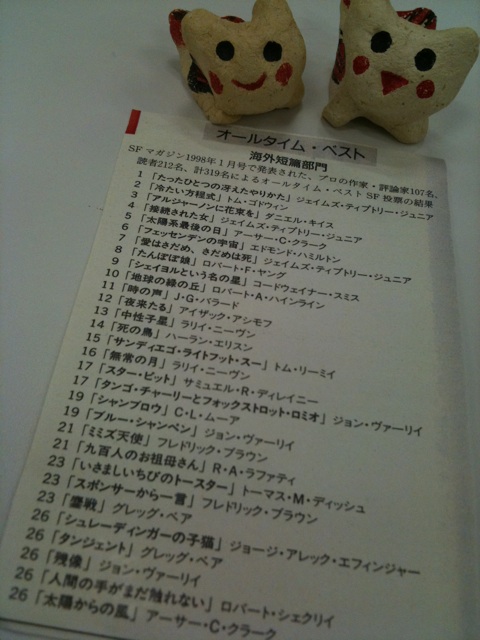 オールタイム・ベスト
海外短篇部門
SFマガジン1998年1月号で発表された、プロの作家・評論家107名、
読者212名、計319名によるオールタイム・ベストSF投票の結果
1「たったひとつの冴えたやりかた」ジェイムズ・ティプトリー・ジュニア
2「冷たい方程式」トム・ゴドウィン
3「アルジャーノンに花束を」ダニエル・キイス
4「接続された女」ジェイムズ・ティプトリー・ジュニア
5「太陽系最後の日」アーサー・C・クラーク
6「フェッセンデンの宇宙」エドモンド・ハミルトン
7「愛はさだめ、さだめは死」ジェイムズ・ティプトリー・ジュニア
8「たんぽぽ娘」ロバート・F・ヤング
9「シェイヨルという名の星」コードウェイナー・スミス
10「地球の緑の丘」ロバート・A・ハインライン
11「時の声」J・G・バラード
12「夜来たる」アイザック・アシモフ
13「中性子星」ラリイ・ニーヴン
14「死の鳥」ハーラン・エリスン
15「サンディエゴ・ライトフット・スー」トム・リーミイ
16「無常の月」ラリイ・ニーヴン
17「スター・ピット」サミュエル・R・ディレイニー
17「タンゴ・チャーリーとフォックストロット・ロミオ」ジョン・ヴァーリイ
19「シャンブロウ」C・L・ムーア
19「ブルー・シャンペン」ジョン・ヴァーリイ
21「ミミズ天使」フレドリック・ブラウン
21「九百人のお祖母さん」R・A・ラファティ
23「いさましいちびのトースター」トーマス・M・ディッシュ
23「スポンサーから一言」フレドリック・ブラウン
23「鏖戦」グレッグ・ベア
26「シュレーディンガーの子猫」ジョージ・アレック・エフィンジャー
26「タンジェント」グレッグ・ベア
26「残像」ジョン・ヴァーリイ
26「人間の手がまだ触れない」ロバート・シェクリイ
26「太陽からの風」アーサー・C・クラーク